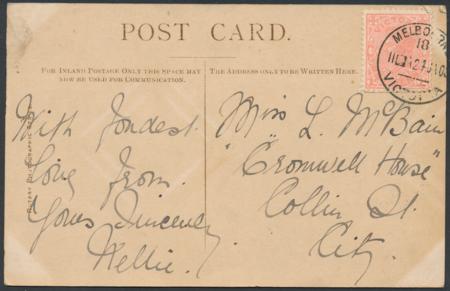 POST CARD.
FOR INLAND POSTAGE ONLY THIS SPACE MAY
NOW BE USED FOR COMMUNICATION.
THE ADDRESS ONLY TO BE WRITTEN HERE.
VICTORIA
MELBOURNE
18
VICTORIA
With fondest
Love from
Yours Sincerely
Nellie.
Miss L. McBain
"Cromwell House"
Collin St.
City.